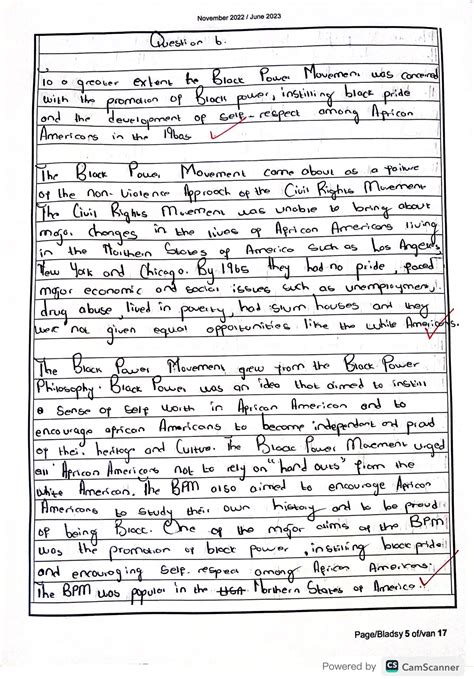 November 2022 / June 2023
Question 6.
To a greater extent the Black Power Movement was concerned
with the promotion of Black power, instilling black pride
and the development of self-respect among African
Americans in the 1960s
The Black Power Movement came about as a failure
of the non-violence Approach of the Civil Rights Movement
The Civil Rights Movement was unable to bring about
major changes in the lives of African Americans living
in the Northern States of America such as Los Angeles,
New York and Chicago. By 1965 they had no pride, faced
major economic and social issues such as unemployment,
drug abuse, lived in poverty, had slum houses and they
were not given equal opportunities like the white Americans.
The Black Power Movement grew from the Black Power
Philosophy. Black Power was an idea that aimed to instill
a sense of self worth in African American and to
encourage african Americans to become independent and proud
of their heritage and Culture. The Black Power Movement urged
all African Americans not to rely on "hand outs" from the
white American. The BPM also aimed to encourage African
Americans to study their own history and to be proud
of being Black. One of the major aims of the BPM
was the promotion of black power, instilling black pride
and encouraging self-respect among African Americans.
The BPM was popular in the USA Northern States of America.
Page/Bladsy 5 of/van 17
Powered by CS CamScanner